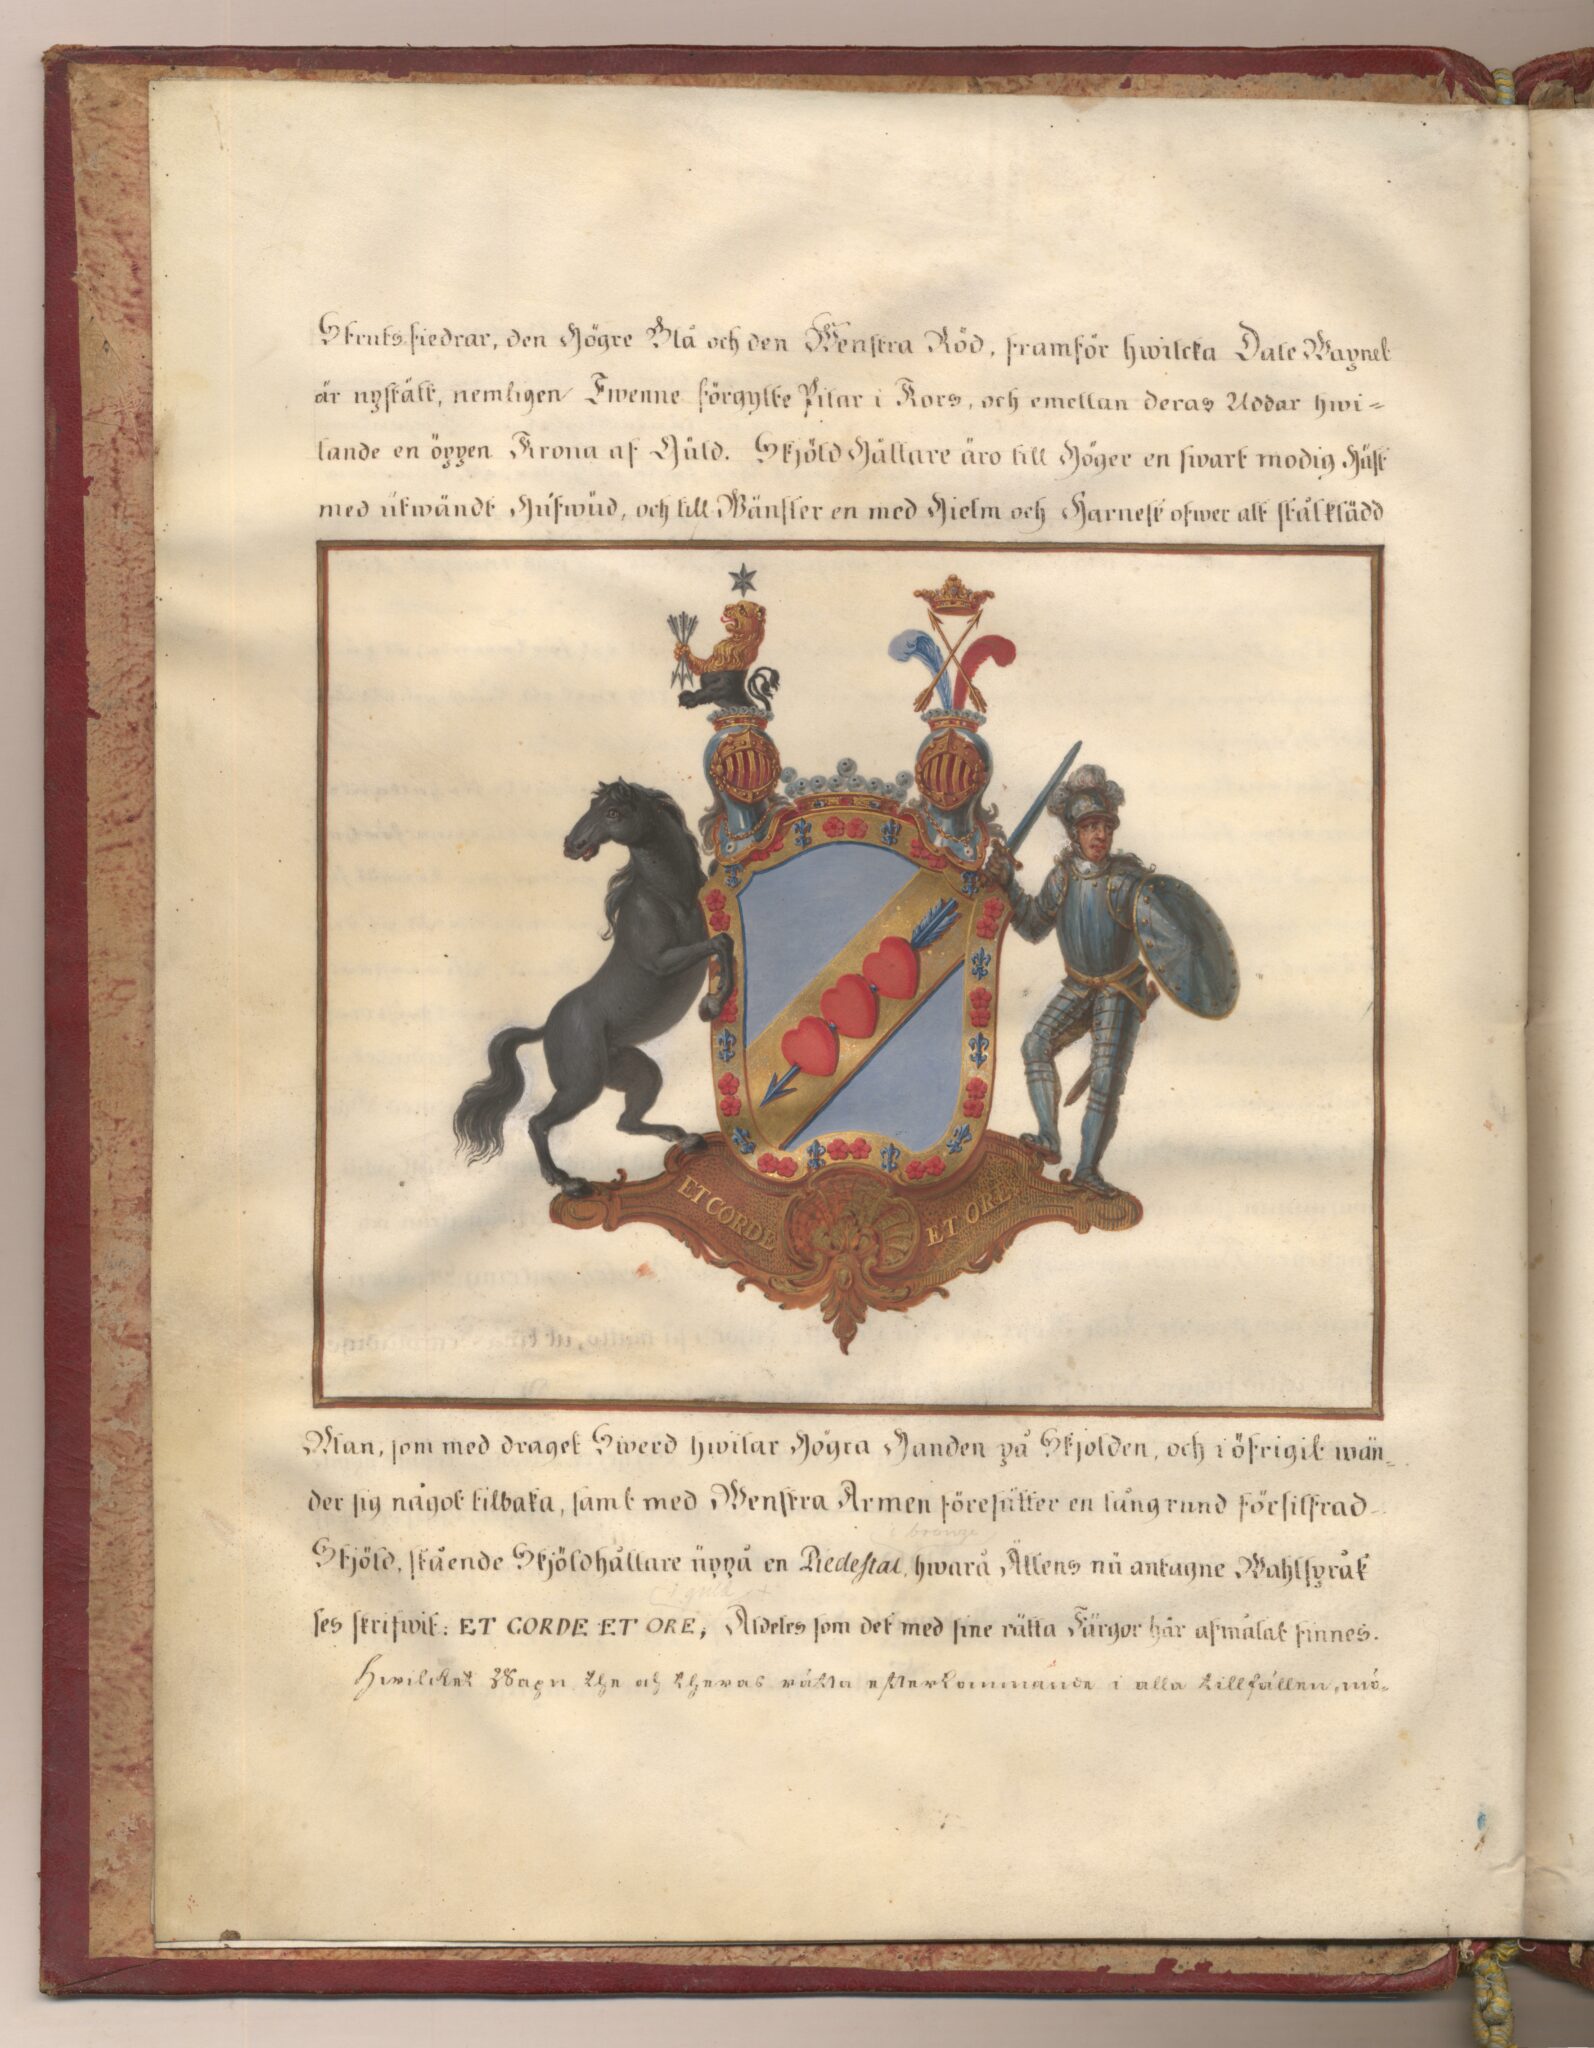 Strutsfiedrar, den Högre Blå och den Wenstra Röd, framför hwilcka Dale Wapnet
är upstält, nemligen Twenne förgylte Pilar i Kors, och emellan deras Uddar hwi=
lande en öppen Krona af Guld. Skjöld Hållare äro till Höger en swart modig Häst
med utwändt Hufwud, och till Wänster en med Hielm och Harnesk ofwer alt stålklädd
ET CORDE
ET ORE
Man, som med draget Swerd hwilar Högra Handen på Skjolden, och i öfrigit wän=
der sig något tilbaka, samt med Wenstra Armenföresätter en långrund försilfrad
bronze
Skjöld, stående Skjöldhållare uppå en Piedestal, hwarå Ättens nu antagne Wahlspråk
ses skrifwit: ET CORDE ET ORE, Aldeles som det med sine rätta Färgor här afmålat finnes.
Hwilcket Wapn the och theras rätta efterkommande i alla tillfällen, mö=